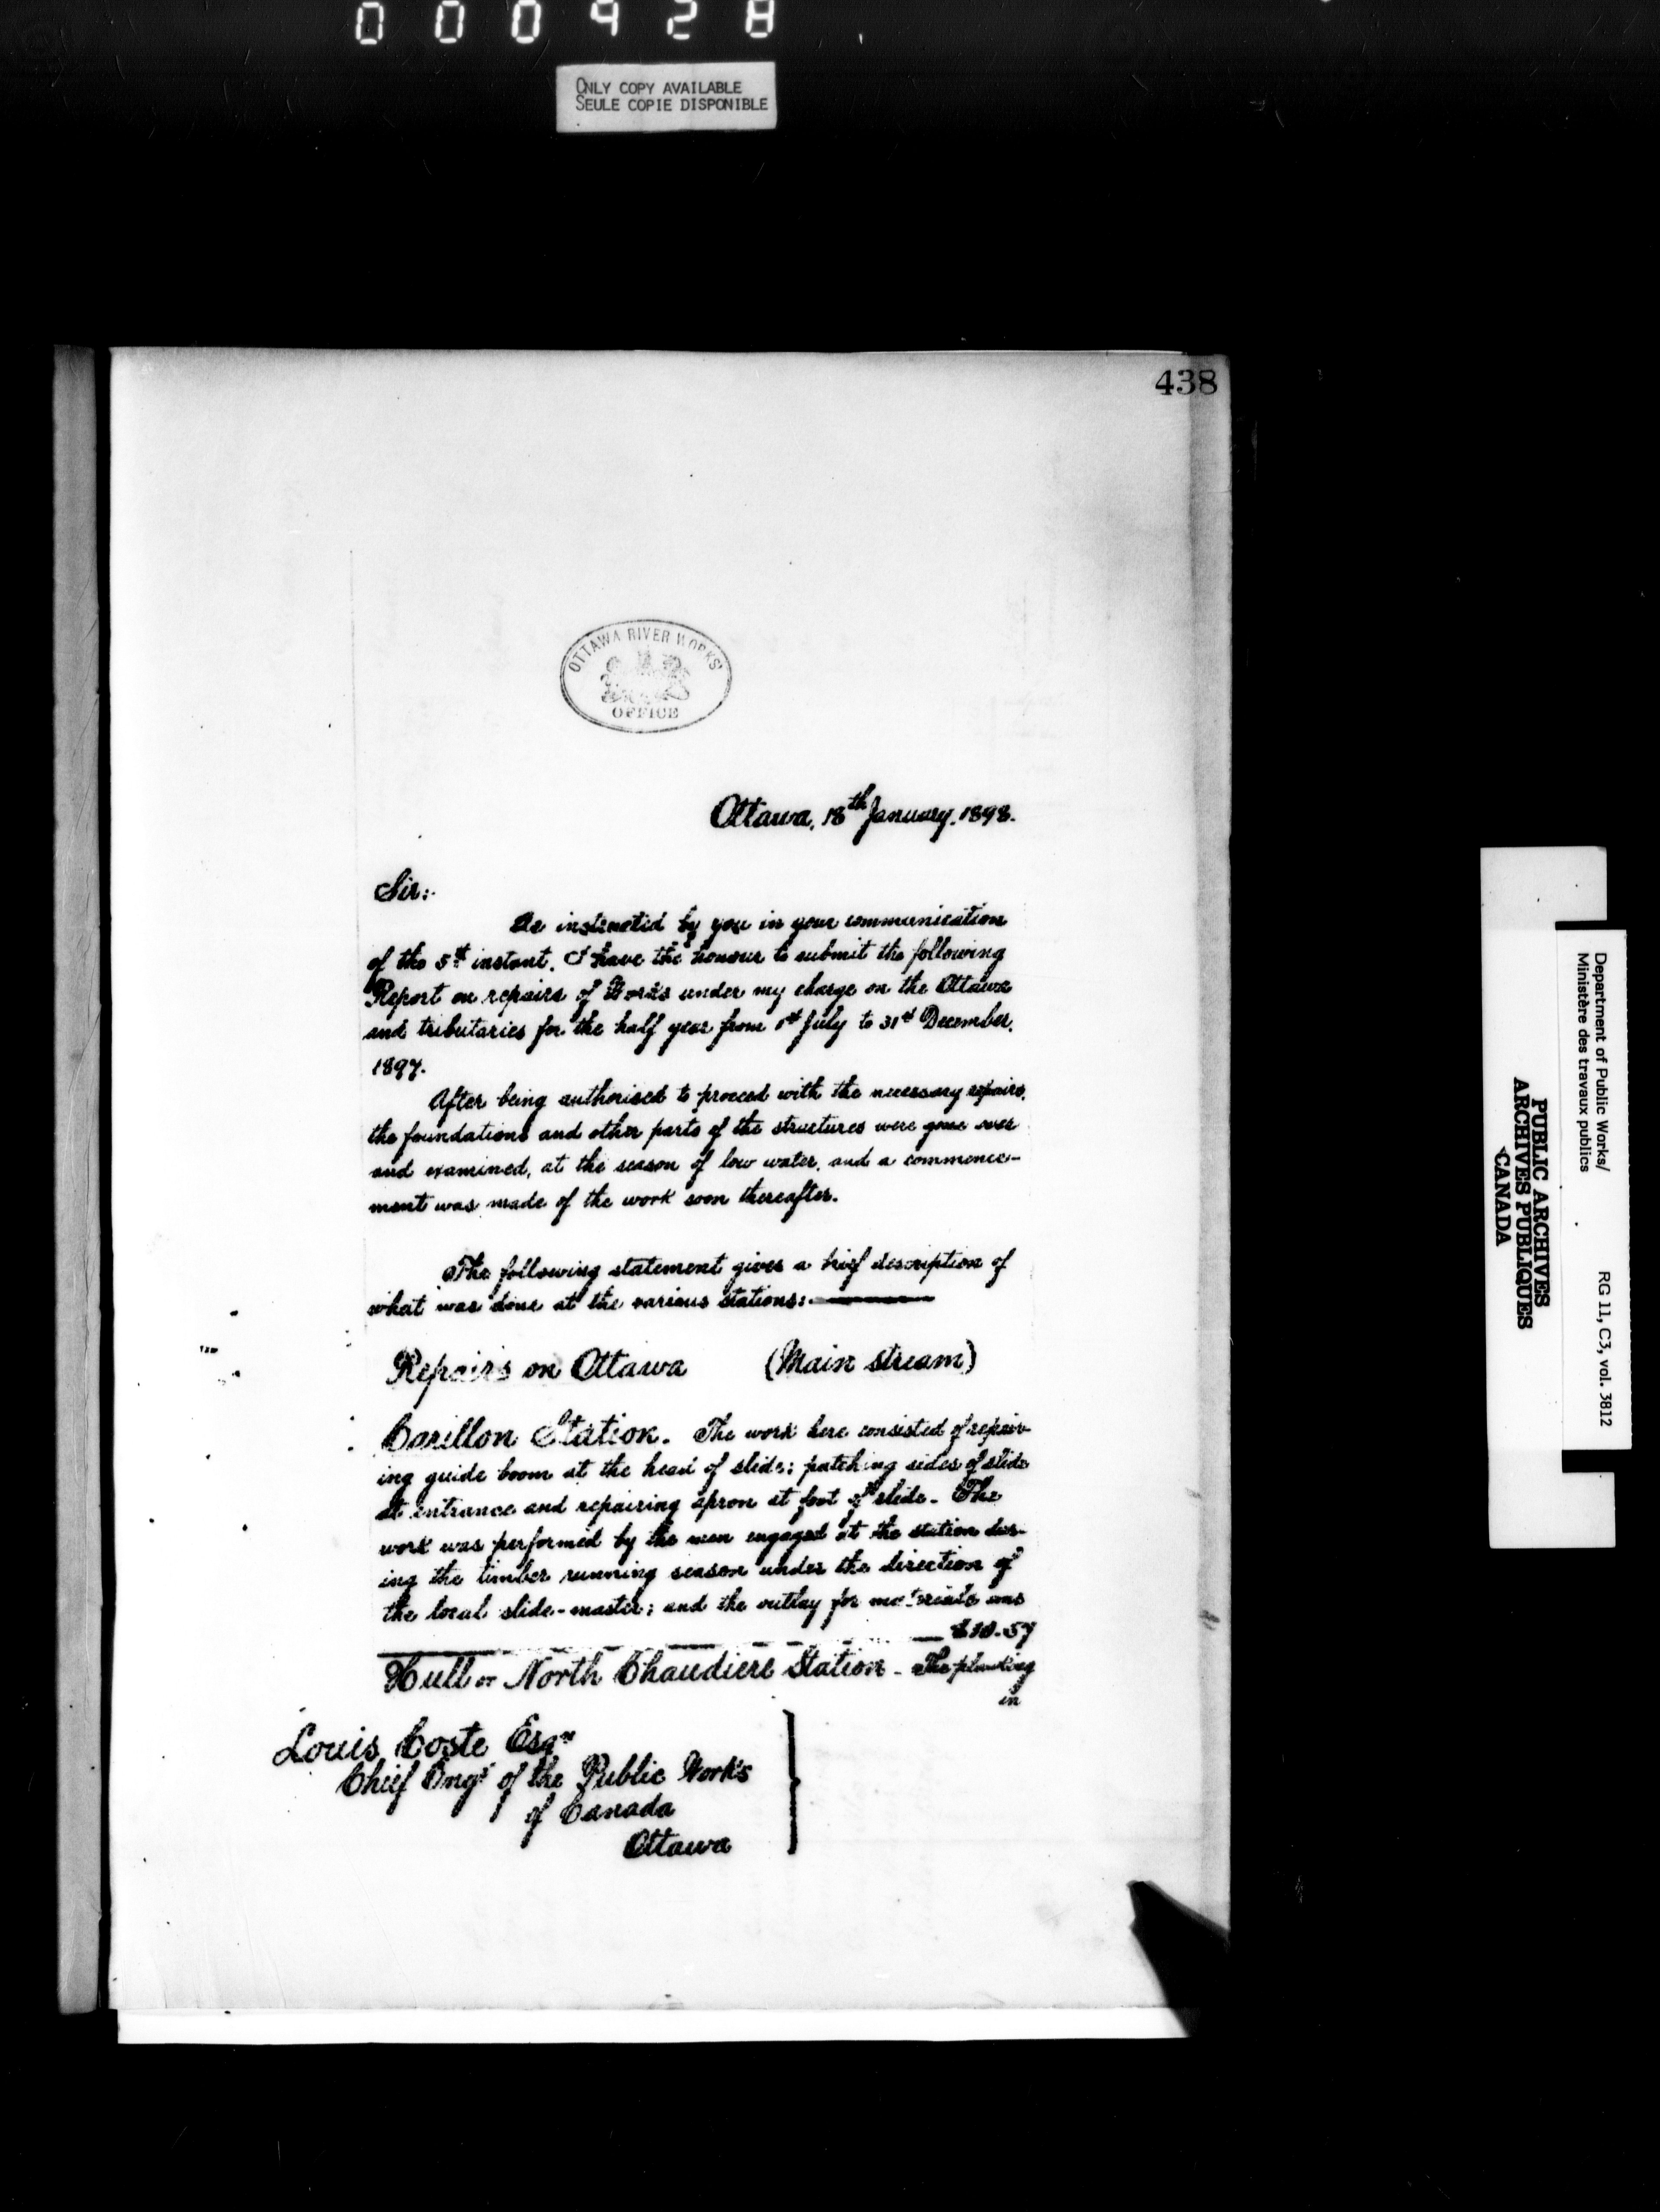 000428
ONLY COPY AVAILABLE
SEULE COPIE DISPONIBLE
438
OTTAWA RIVER WORKS
OFFICE
Ottawa, 18th January, 1898.
Sir:
As instructed by you in your communication
of the 5th instant, I have the honour to submit the following
Report on repairs of Works under my charge on the Ottawa
and tributaries for the half year from 1st July to 31st December,
1897.
After being authorised to proceed with the necessary repairs,
the foundations and other parts of the structures were gone over
and examined, at the season of low water, and a commence-
ment was made of the work soon thereafter.
The following statement gives a brief description of
what was done at the various stations:
Repairs on Ottawa (Main stream)
Carillon Station. The work here consisted of repair-
ing guide boom at the head of slide; patching sides of slide
at entrance and repairing apron at foot of slide. The
work was performed by the men engaged at the station dur-
ing the timber running season under the direction of
the local slide-master; and the outlay for materials was
Hull or North Chaudiere Station - The planking
in
Louis Coste Esqr
Chief Engr of the Public Works
of Canada
Ottawa
Department of Public Works/
Ministère des travaux publics
RG 11, C3, vol. 3812
PUBLIC ARCHIVES
ARCHIVES PUBLIQUES
CANADA